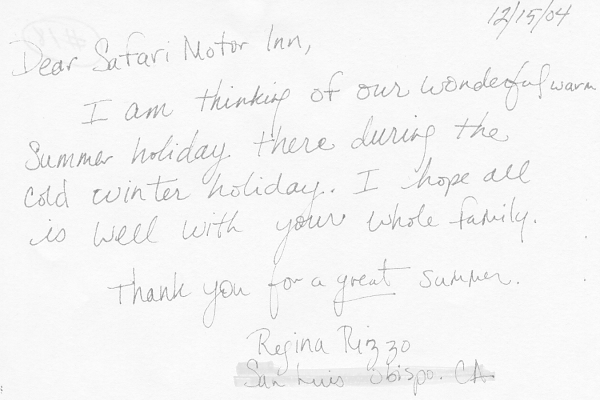 12/15/04
Dear Safari Motor Inn,
I am thinking of our wonderful warm
Summer holiday there during the
cold winter holiday. I hope all
is well with your whole family.
Thank you for a great summer.
Regina Rizzo
San Luis Obispo. CA